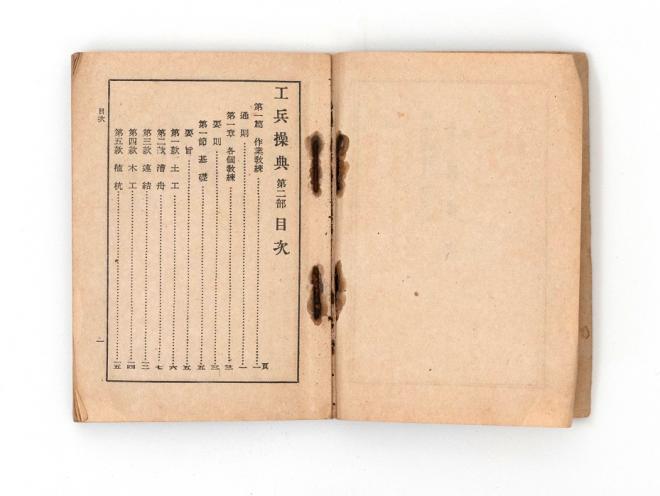 工兵操典 第二部 目次
第一篇 作業教練 一頁
通則 一
第一章 各個教練 三
要則 三
第一節 基礎 五
要旨 五
第一款 土工 六
第二款 漕舟 七
第三款 連結 一二
第四款 木工 一四
第五款 植杭 一五
目次
一